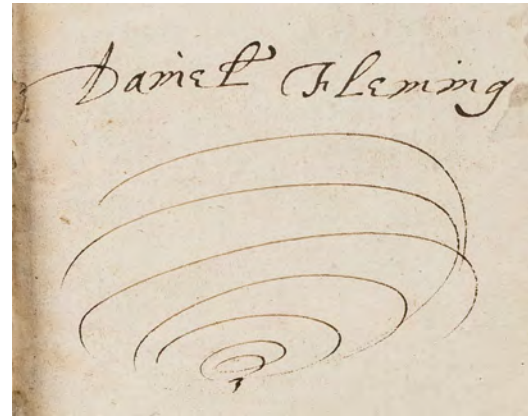 Daniel Fleming